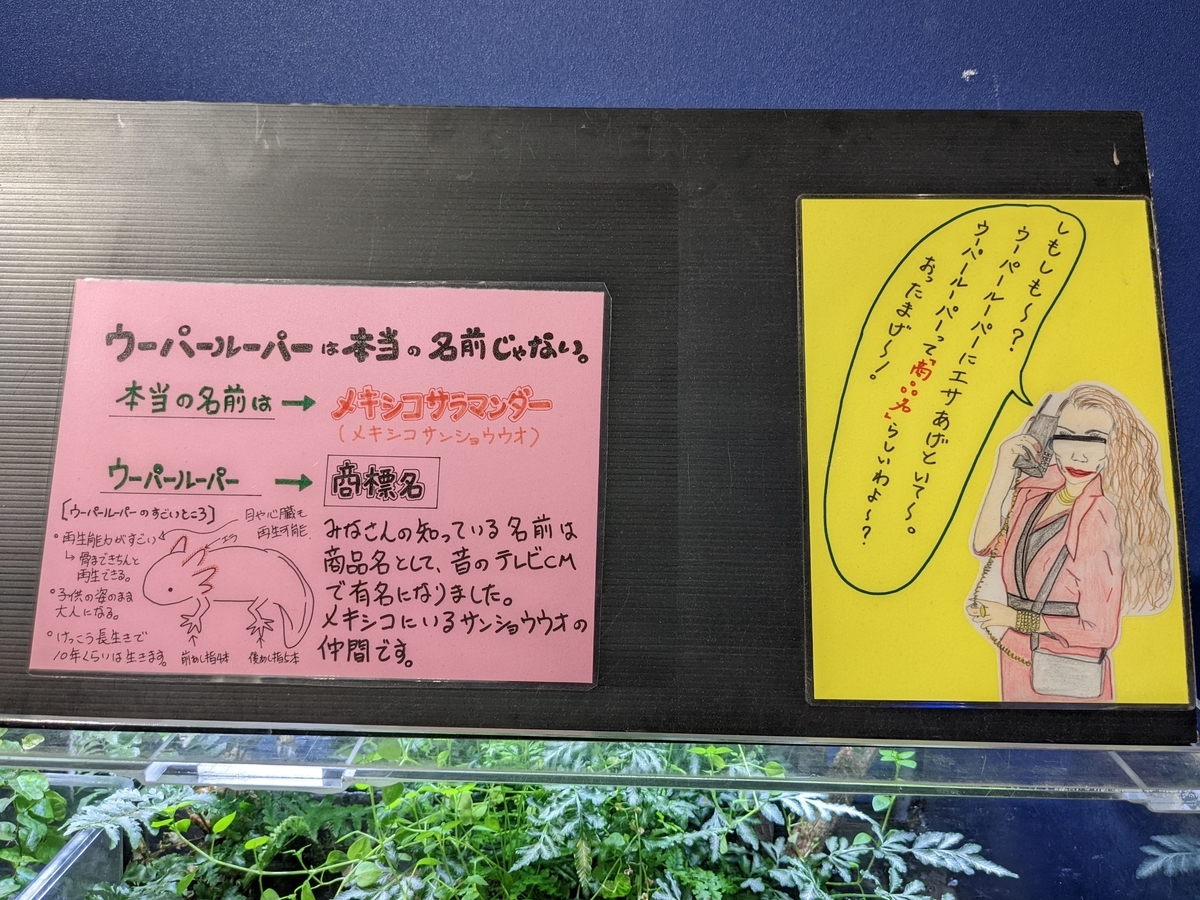 ウーパールーパーは本当の名前じゃない。
本当の名前は → メキシコサラマンダー
(メキシコサンショウウオ)
ウーパールーパー → 商標名
[ウーパールーパーのすごいところ]
・再生能力がすごい
↳骨まできちんと
再生できる。
・子供の姿のまま
大人になる。
・けっこう長生きで
10年くらいは生きます。
目や心臓も
再生可能
エラ
前あし指4本
後あし指5本
みなさんの知っている名前は
商品名として、昔のテレビCM
で有名になりました。
メキシコにいるサンショウウオの
仲間です。
しもしも〜?
ウーパールーパーにエサあげといて〜。
ウーパールーパーって「商。。名」らしいわよ〜?
おったまげ〜!